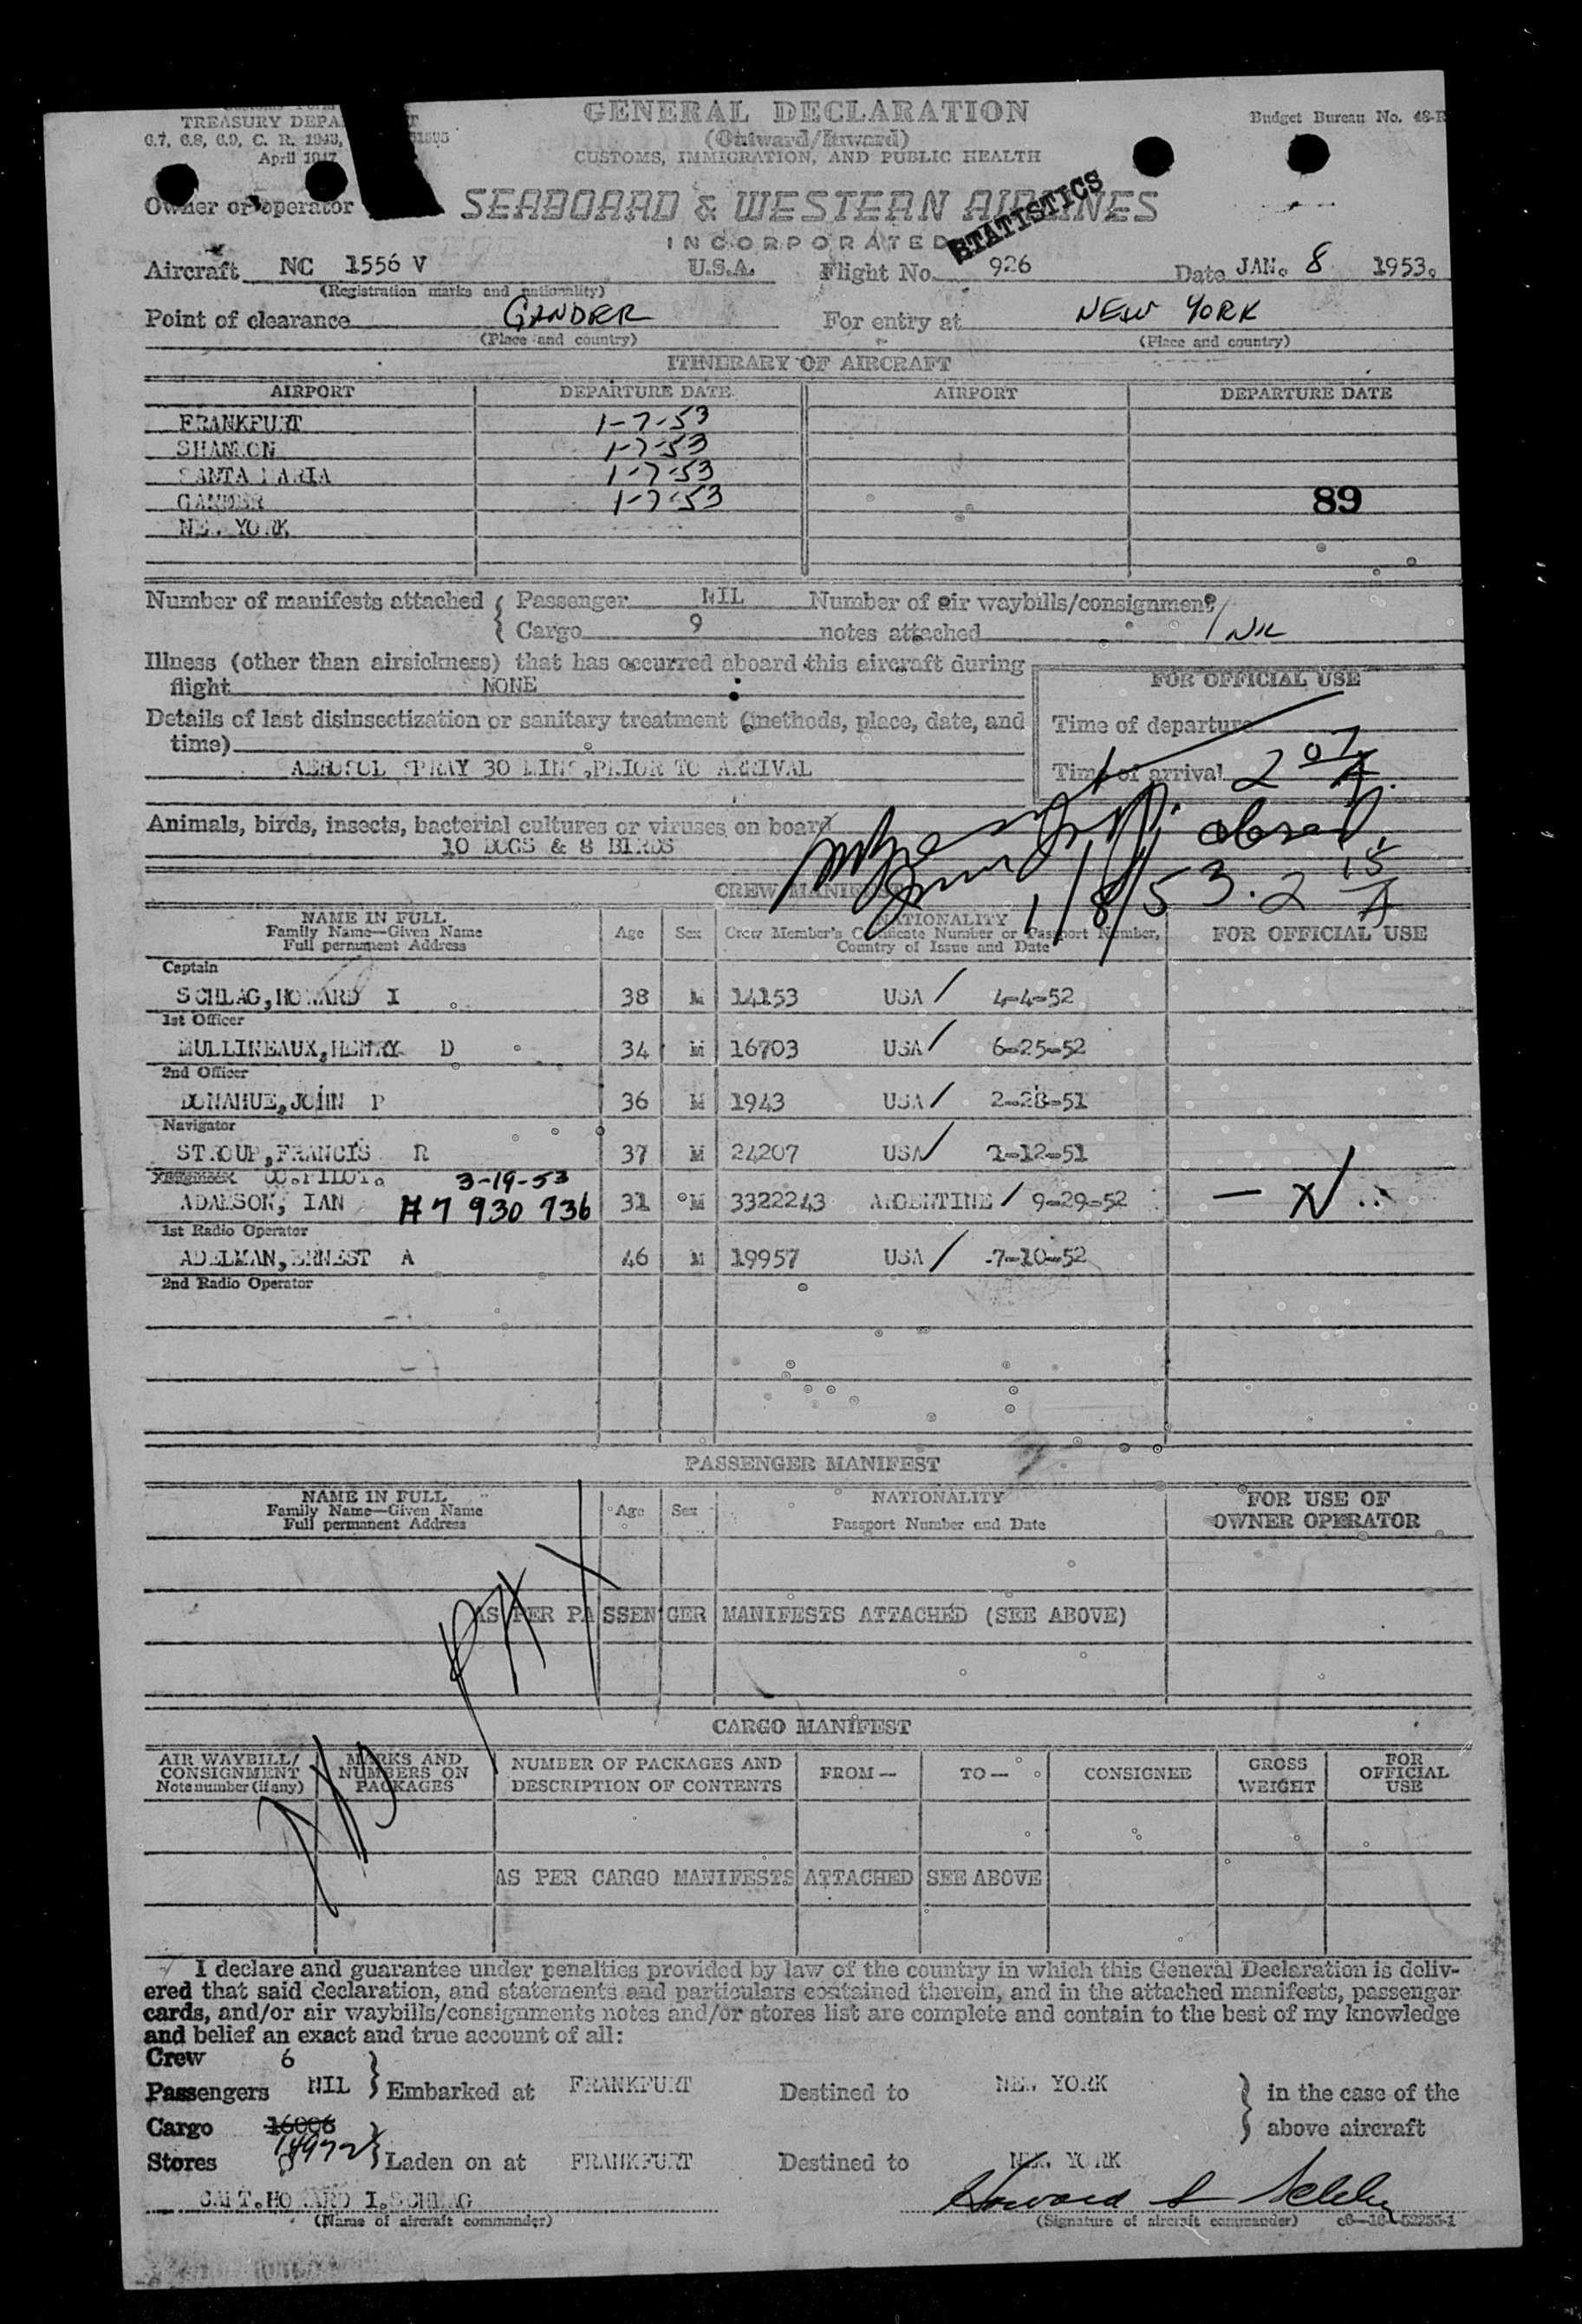 TREASURY DEPA
6.7, 6.8, 6.9, C. R. 1943,
April 1947
GENERAL DECLARATION
(Outward/Inward)
CUSTOMS, IMMIGRATION, AND PUBLIC HEALTH
Budget Bureau No. 48-R
Owner or operator SEABOARD & WESTERN AIRLINES
INCORPORATED
STATISTICS
Aircraft NC 1556 V U.S.A. Flight No. 926 Date JAN. 8 1953.
(Registration marks and nationality)
Point of clearance GANDER For entry at NEW YORK
(Place and country) (Place and country)
ITINERARY OF AIRCRAFT
AIRPORT DEPARTURE DATE AIRPORT DEPARTURE DATE
FRANKFURT 1-7-53
SHANNON 1-7-53
SANTA MARIA 1-7-53
GANDER 1-7-53 89
NEW YORK
Number of manifests attached { Passenger NIL Number of air waybills/consignment
Cargo 9 notes attached NIL
Illness (other than airsickness) that has occurred aboard this aircraft during
flight NONE
FOR OFFICIAL USE
Details of last disinsectization or sanitary treatment (methods, place, date, and
time)
Time of departure
AEROSOL SPRAY 30 MINS,PRIOR TO ARRIVAL
Time of arrival 2 07 A.
Animals, birds, insects, bacterial cultures or viruses on board
10 DOGS & 8 BIRDS
1/8/53. 2 15 A
CREW MANIFEST
NAME IN FULL
Family Name—Given Name
Full permanent Address
Age Sex
NATIONALITY
Crew Member's Certificate Number or Passport Number,
Country of Issue and Date
FOR OFFICIAL USE
Captain
SCHLAG,HOWARD I 38 M 14153 USA / 4-4-52
1st Officer
MULLINEAUX,HENRY D 34 M 16703 USA / 6-25-52
2nd Officer
DONAHUE,JOHN P 36 M 1943 USA / 2-28-51
Navigator
STROUP,FRANCIS R 37 M 24207 USA / 1-12-51
CO.PILOT. 3-19-53
ADAMSON, IAN A7 930 736 31 M 3322243 ARGENTINE / 9-29-52
1st Radio Operator
ADELMAN,ERNEST A 46 M 19957 USA / 7-10-52
2nd Radio Operator
PASSENGER MANIFEST
NAME IN FULL
Family Name—Given Name
Full permanent Address
Age Sex
NATIONALITY
Passport Number and Date
FOR USE OF
OWNER OPERATOR
AS PER PASSENGER MANIFESTS ATTACHED (SEE ABOVE)
CARGO MANIFEST
AIR WAYBILL/
CONSIGNMENT
Note number (if any)
MARKS AND
NUMBERS ON
PACKAGES
NUMBER OF PACKAGES AND
DESCRIPTION OF CONTENTS
FROM— TO— CONSIGNEE
GROSS
WEIGHT
FOR
OFFICIAL
USE
AS PER CARGO MANIFESTS ATTACHED SEE ABOVE
I declare and guarantee under penalties provided by law of the country in which this General Declaration is deliv-
ered that said declaration, and statements and particulars contained therein, and in the attached manifests, passenger
cards, and/or air waybills/consignments notes and/or stores list are complete and contain to the best of my knowledge
and belief an exact and true account of all:
Crew 6
Passengers NIL } Embarked at FRANKFURT Destined to NEW YORK } in the case of the
Cargo 16006 above aircraft
Stores } Laden on at FRANKFURT Destined to NEW YORK
CAPT.HOWARD I.SCHLAG
(Name of aircraft commander) (Signature of aircraft commander)